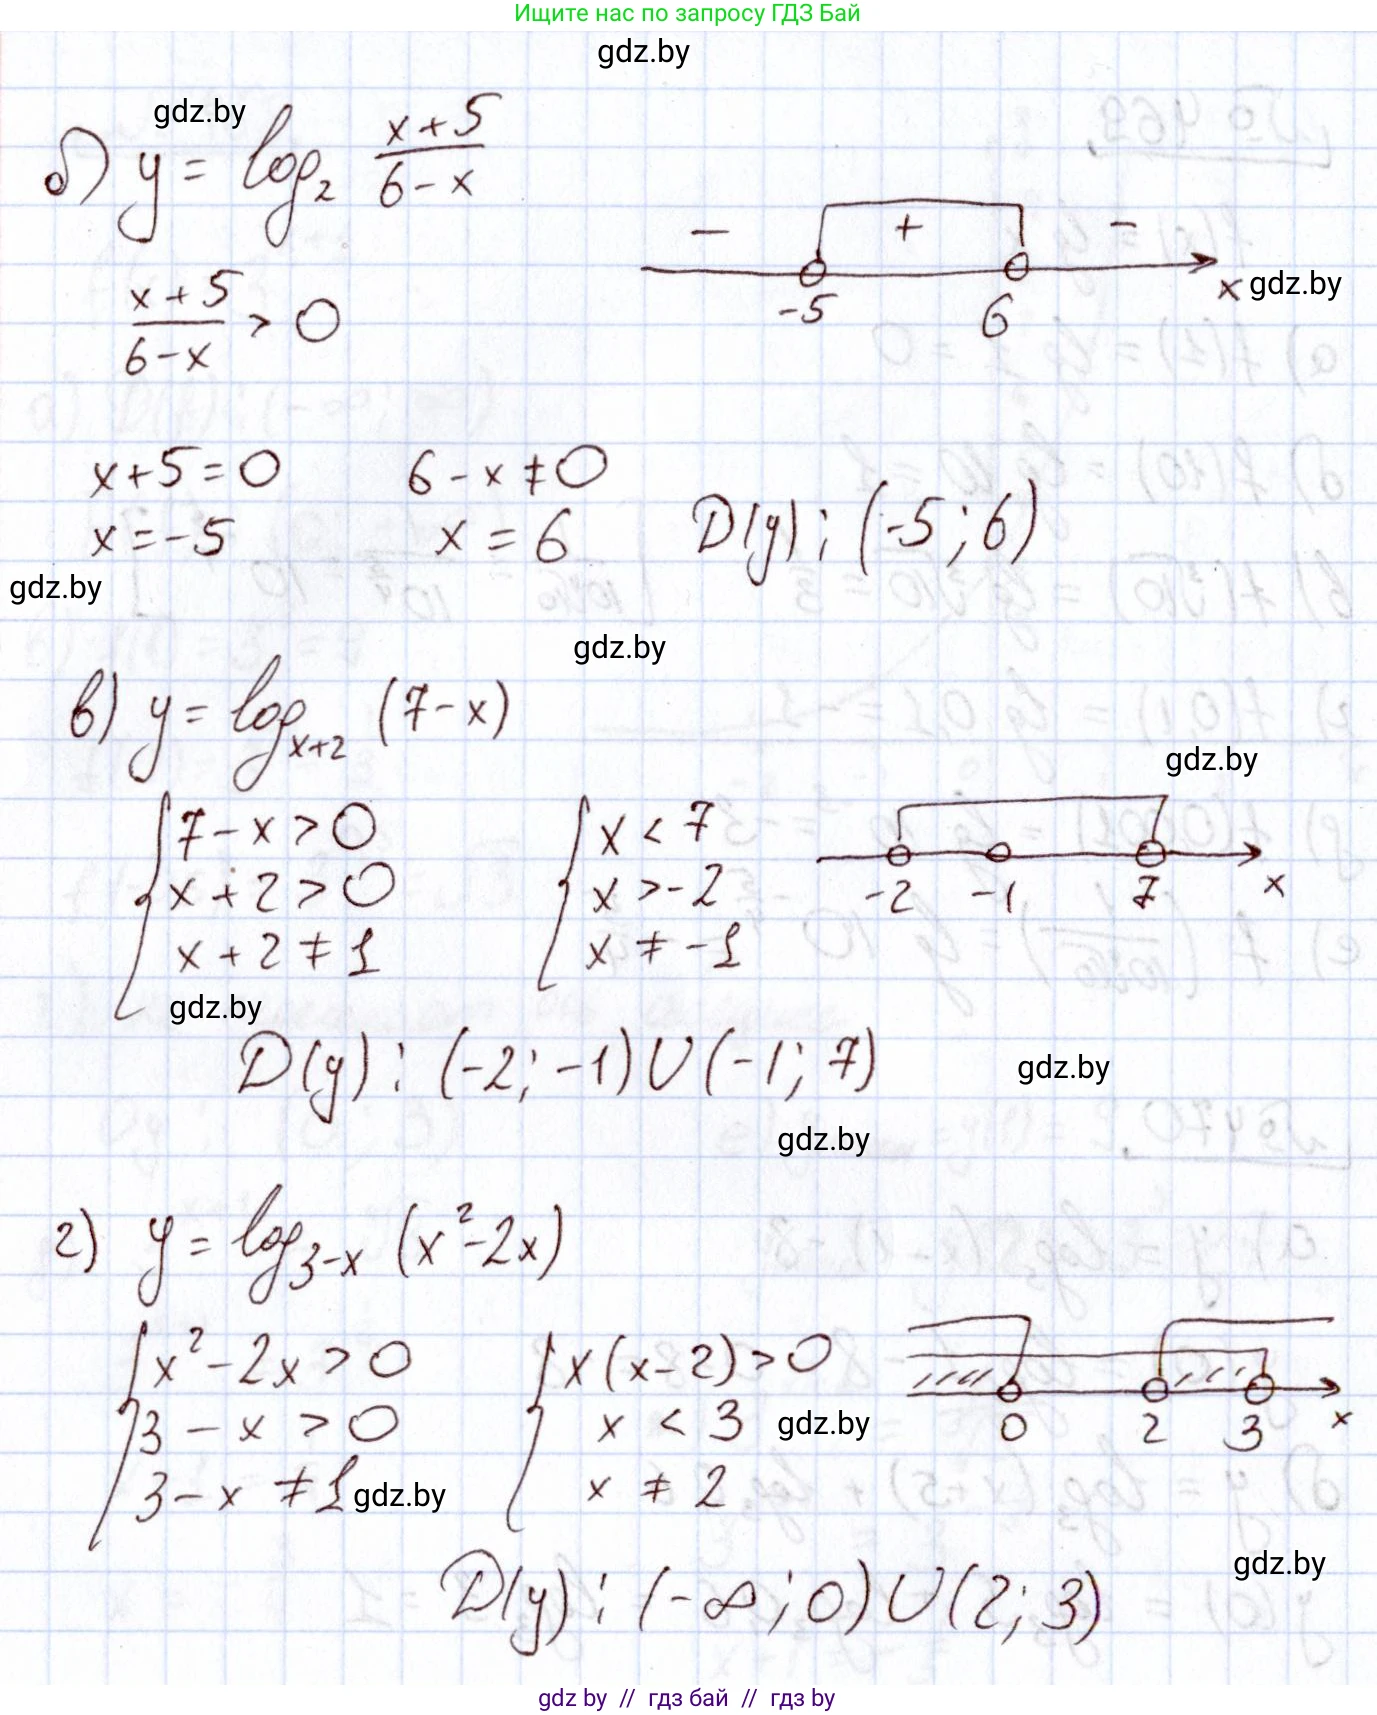 Ищите нас по запросу ГДЗ Бай
gdz.by
gdz.by
б) y = log₂ (x+5)/(6-x)
- + -
-5 6 x
gdz.by
(x+5)/(6-x) > 0
x+5=0 6-x≠0
x=-5 x=6 D(y): (-5;6)
gdz.by
gdz.by
в) y = log_{x+2} (7-x)
gdz.by
7-x>0 x<7
x+2>0 x>-2
x+2≠1 x≠-1
-2 -1 7 x
gdz.by
D(y): (-2;-1)U(-1;7)
gdz.by
gdz.by
г) y = log_{3-x} (x²-2x)
x²-2x>0 x(x-2)>0
3-x>0 x<3
3-x≠1 x≠2
0 2 3 x
gdz.by
gdz.by
gdz.by
D(y): (-∞;0)U(2;3)
gdz by // гдз бай // гдз by